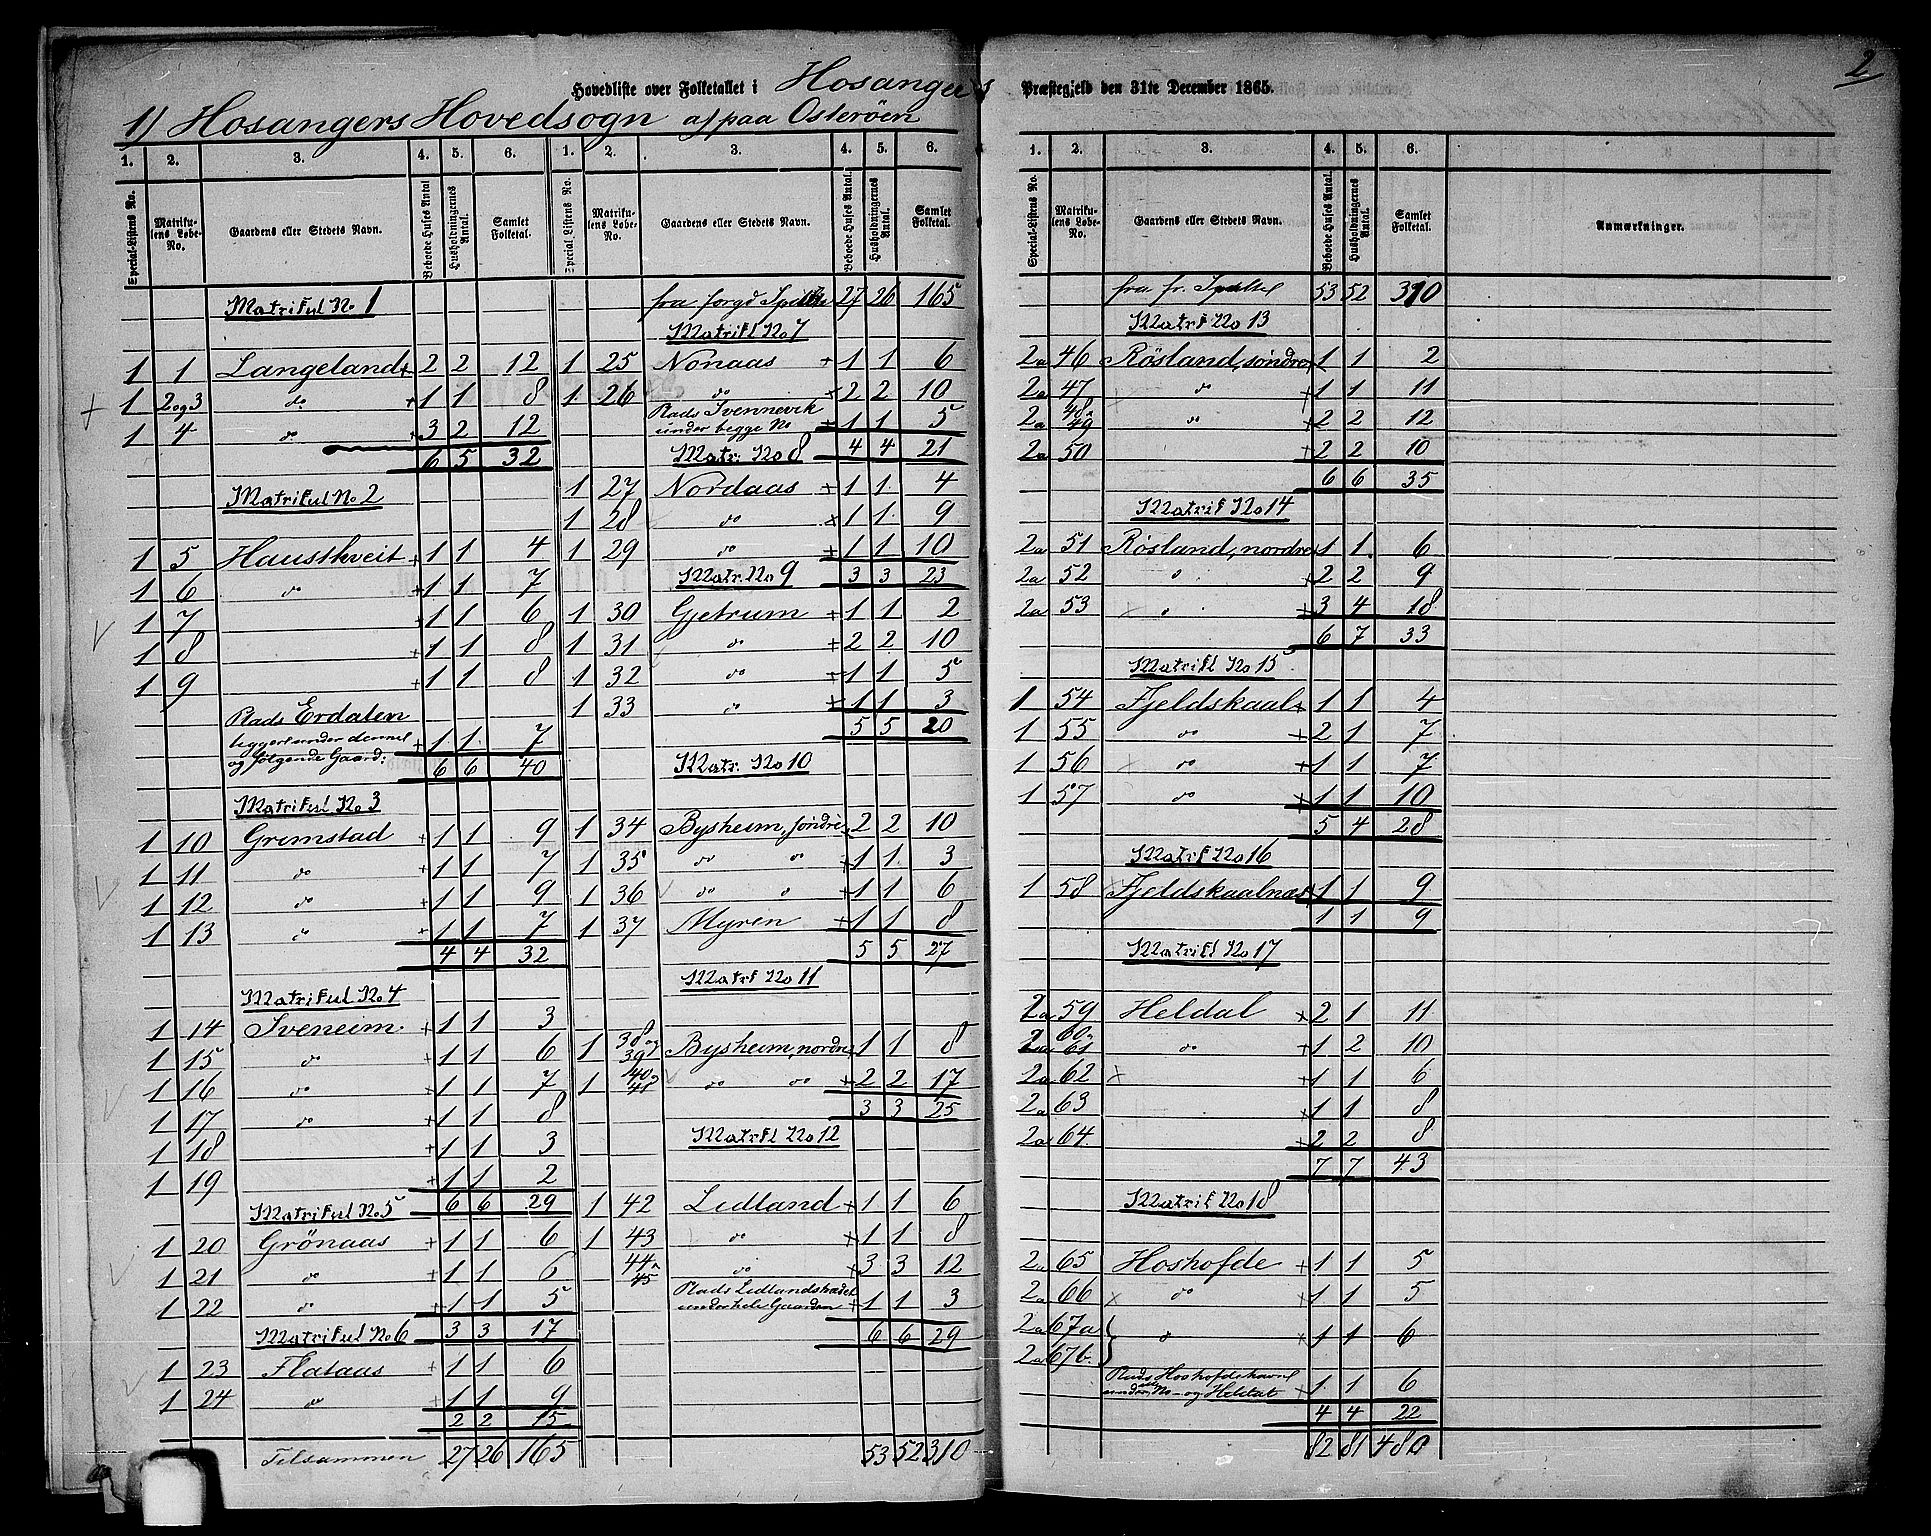 2
Hovedliste over Folketallet i Hosangers Præstegjeld den 31te December 1865.
1) Hosangers Hovedsogn af paa Osterøen
1. 2. 3. 4. 5. 6. 1. 2. 3. 4. 5. 6.
Special-Listens No. Matrikulens Løbe-No. Gaardens eller Stedets Navn. Beboede Huses Antal Husholdningernes Antal. Samlet Folketal. Special Listens No. Matrikulens Løbe-No. Gaardens eller Stedets Navn. Beboede Huses Antal. Husholdningernes Antal. Samlet Folketal.
Matrikul No 1
1 1 Langeland + 2 2 12
+ 1 2og3 do + 1 1 8
1 4 do + 3 2 12
6 5 32
Matrikul No 2
1 5 Hausthveit + 1 1 4
1 6 do + 1 1 7
1 7 + 1 1 6
1 8 + 1 1 8
1 9 + 1 1 8
Plads Erdalen
liggerl under denne + 1 1 7
og følgende Gaard:
6 6 40
Matrikul No 3
1 10 Gremstad + 1 1 9
1 11 do + 1 1 7
1 12 do + 1 1 9
1 13 do + 1 1 7
4 4 32
Matrikul No 4
1 14 Iveneim + 1 1 3
1 15 do + 1 1 6
1 16 do + 1 1 7
1 17 do + 1 1 8
1 18 + 1 1 3
1 19 + 1 1 2
Matrikul No 5 6 6 29
1 20 Grönaas + 1 1 6
1 21 do + 1 1 6
1 22 do + 1 1 5
Matrikul No 6 3 3 17
1 23 Flataas + 1 1 6
1 24 do + 1 1 9
2 2 15
Tilsammen 27 26 165
fra forgd Spalte 27 26 165
Matrikl No 7
1 25 Nonaas + 1 1 6
1 26 do + 2 2 10
Plads Svennevik
under begge No + 1 1 5
Matr. No 8 4 4 21
1 27 Nordaas + 1 1 4
1 28 do + 1 1 9
1 29 do + 1 1 10
Matr. No 9 3 3 23
1 30 Gjetrum + 1 1 2
1 31 do + 2 2 10
1 32 do + 1 1 5
1 33 do + 1 1 3
5 5 20
Matr. No 10
1 34 Bysheim, söndre 2 2 10
1 35 do do + 1 1 3
1 36 do do + 1 1 6
1 37 Myren + 1 1 8
5 5 27
Matrl No 11
1 38og39 Bysheim, nordre 1 1 8
1 40og41 do do + 2 2 17
3 3 25
Matrikl No 12
1 42 Lidland + 1 1 6
1 43 do + 1 1 8
44 45 do + 3 3 12
Plads Lidlandshadel
under hele Gaarden + 1 1 3
6 6 29
53 52 310
1. 2. 3. 4. 5. 6. 7.
Special-Listens No. Matrikulens Løbe-No. Gaardens eller Stedets Navn. Beboede Huses Antal. Husholdningernes Antal. Samlet Folketal. Anmærkninger.
fra fr. Spalte 53 52 310
Matrl No 13
2a 46 Rösland, söndre 1 1 2
2a 47 do + 1 1 11
2a 48 49 do + 2 2 12
2a 50 + 2 2 10
6 6 35
Matrik No 14
2a 51 Rösland, nordre 1 1 6
2a 52 do + 2 2 9
2a 53 do + 3 4 18
6 7 33
Matrikl No 15
1 54 Fjeldskaal + 1 1 4
1 55 do + 2 1 7
1 56 do + 1 1 7
1 57 do + 1 1 10
5 4 28
Matrik No 16
1 58 Fjeldskaalnæs 1 1 9
1 1 9
Matrikl No 17
2a 59 Heldal x 2 1 11
2a 60 61 do + 1 2 10
2a 62 + 1 1 6
2a 63 + 1 1 8
2a 64 + 2 2 8
7 7 43
Matrik No 18
2a 65 Hoshofde + 1 1 5
2a 66 do + 1 1 5
2a 67a do x 1 1 6
2a 67b
Plads Hoshofdehavnl
under No - og Heldal + 1 1 6
4 4 22
82 81 480